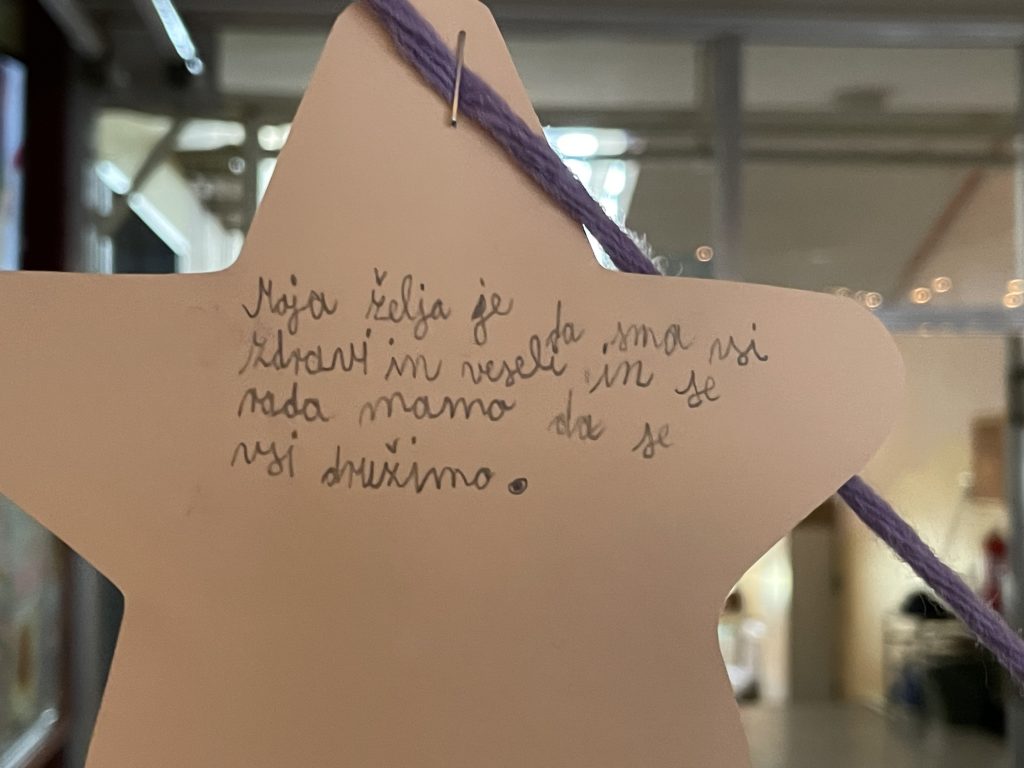 Moja želja je da sma vsi
zdravi in veseli in se
rada mamo da se
vsi družimo.